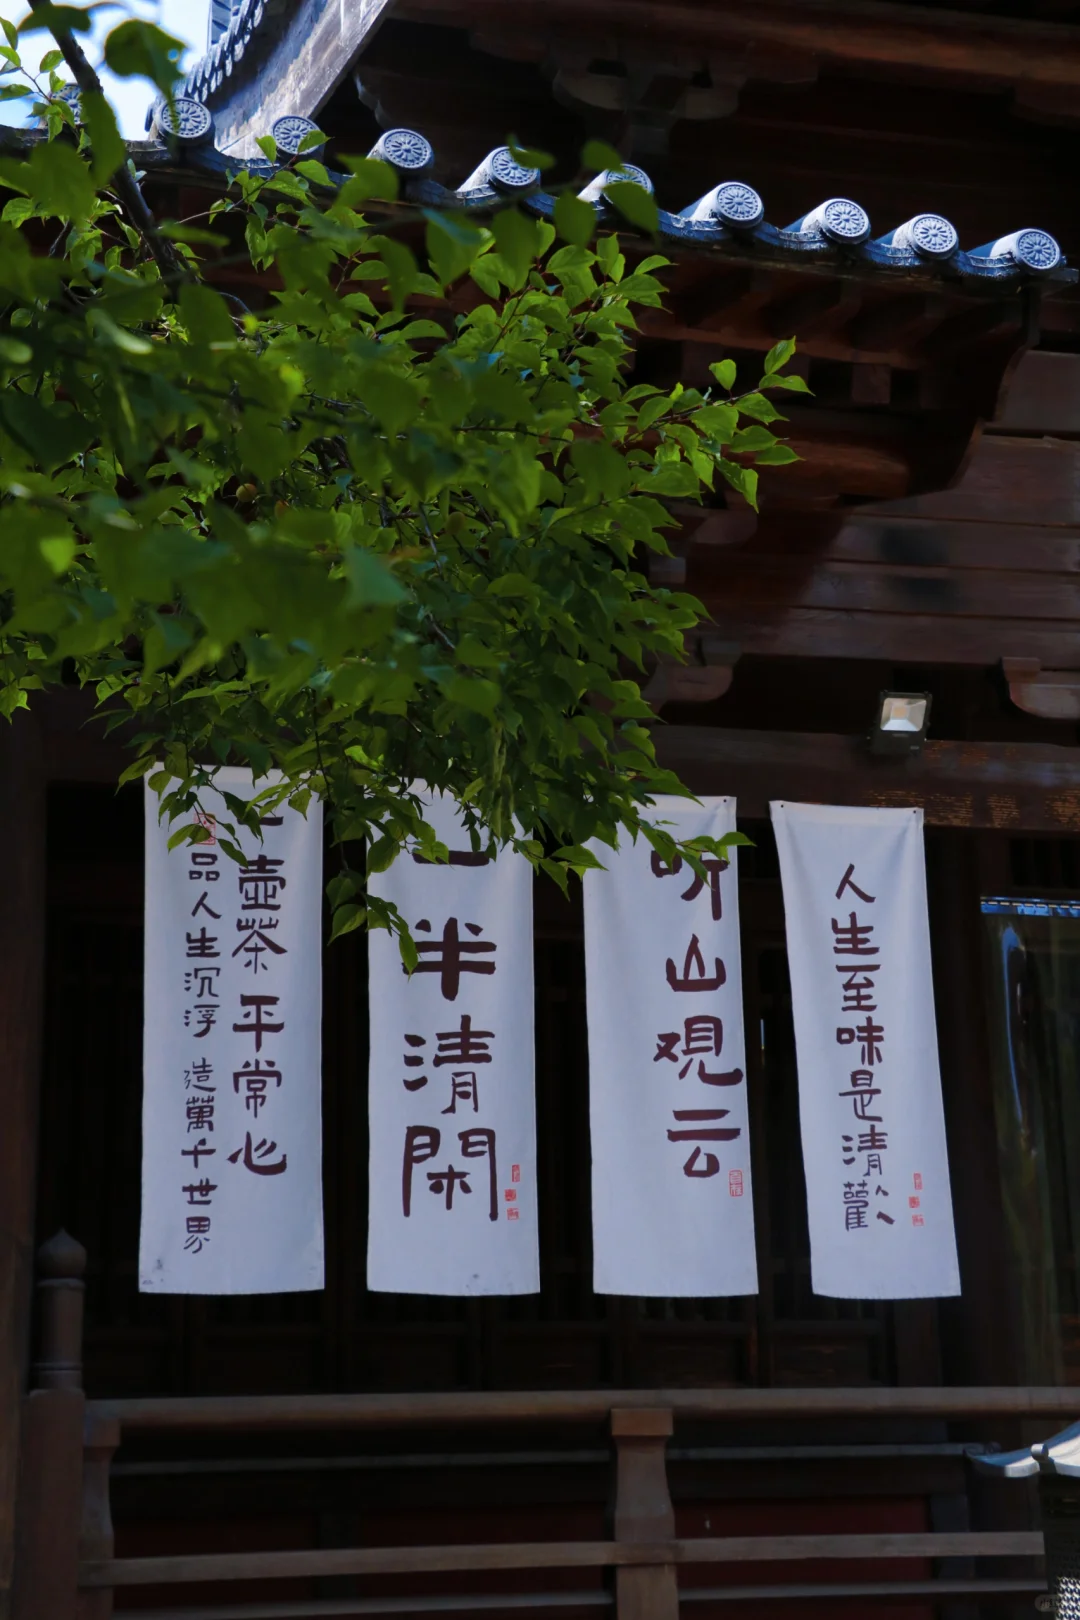 人生至味是清歡
听山观云
一半清閑
一壺茶平常心
品人生沉浮 造萬千世界